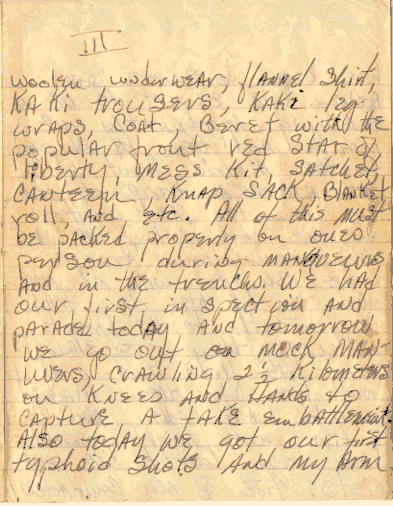 III
woolen underwear, flannel shirt,
KAKi trousers, KAKi leg
wraps, COAT, Beret with the
popular front red STAR of
liberty, MESS Kit, SATchel,
CANTEEN, KNAP SACK, BlANKET
roll, AND etc. All of this must
be packed properly on ones
person during MANQUEUVERS
AND in the trenchs. We had
our first inspection AND
pARADE today AND tomorrow
we go out on MOCK MAN-
UVERS, CRAWLING 2½ Kilometers
on KNEES AND HANDS to
CAPTURE A FAKE EMBATTLEMENT.
Also today we got our first
typhoid SHOTS AND my ARM